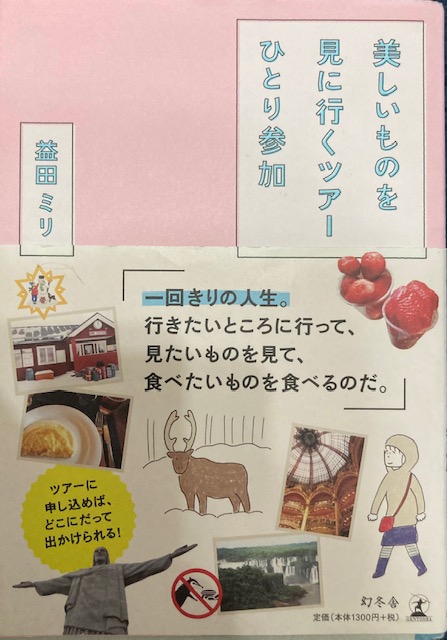 美しいものを
見に行くツアー
ひとり参加
益田ミリ
「一回きりの人生。
行きたいところに行って、
見たいものを見て、
食べたいものを食べるのだ。」
ツアーに
申し込めば、
どこにだって
出かけられる!
幻冬舎
定価(本体1300円+税)
GENTOSHA